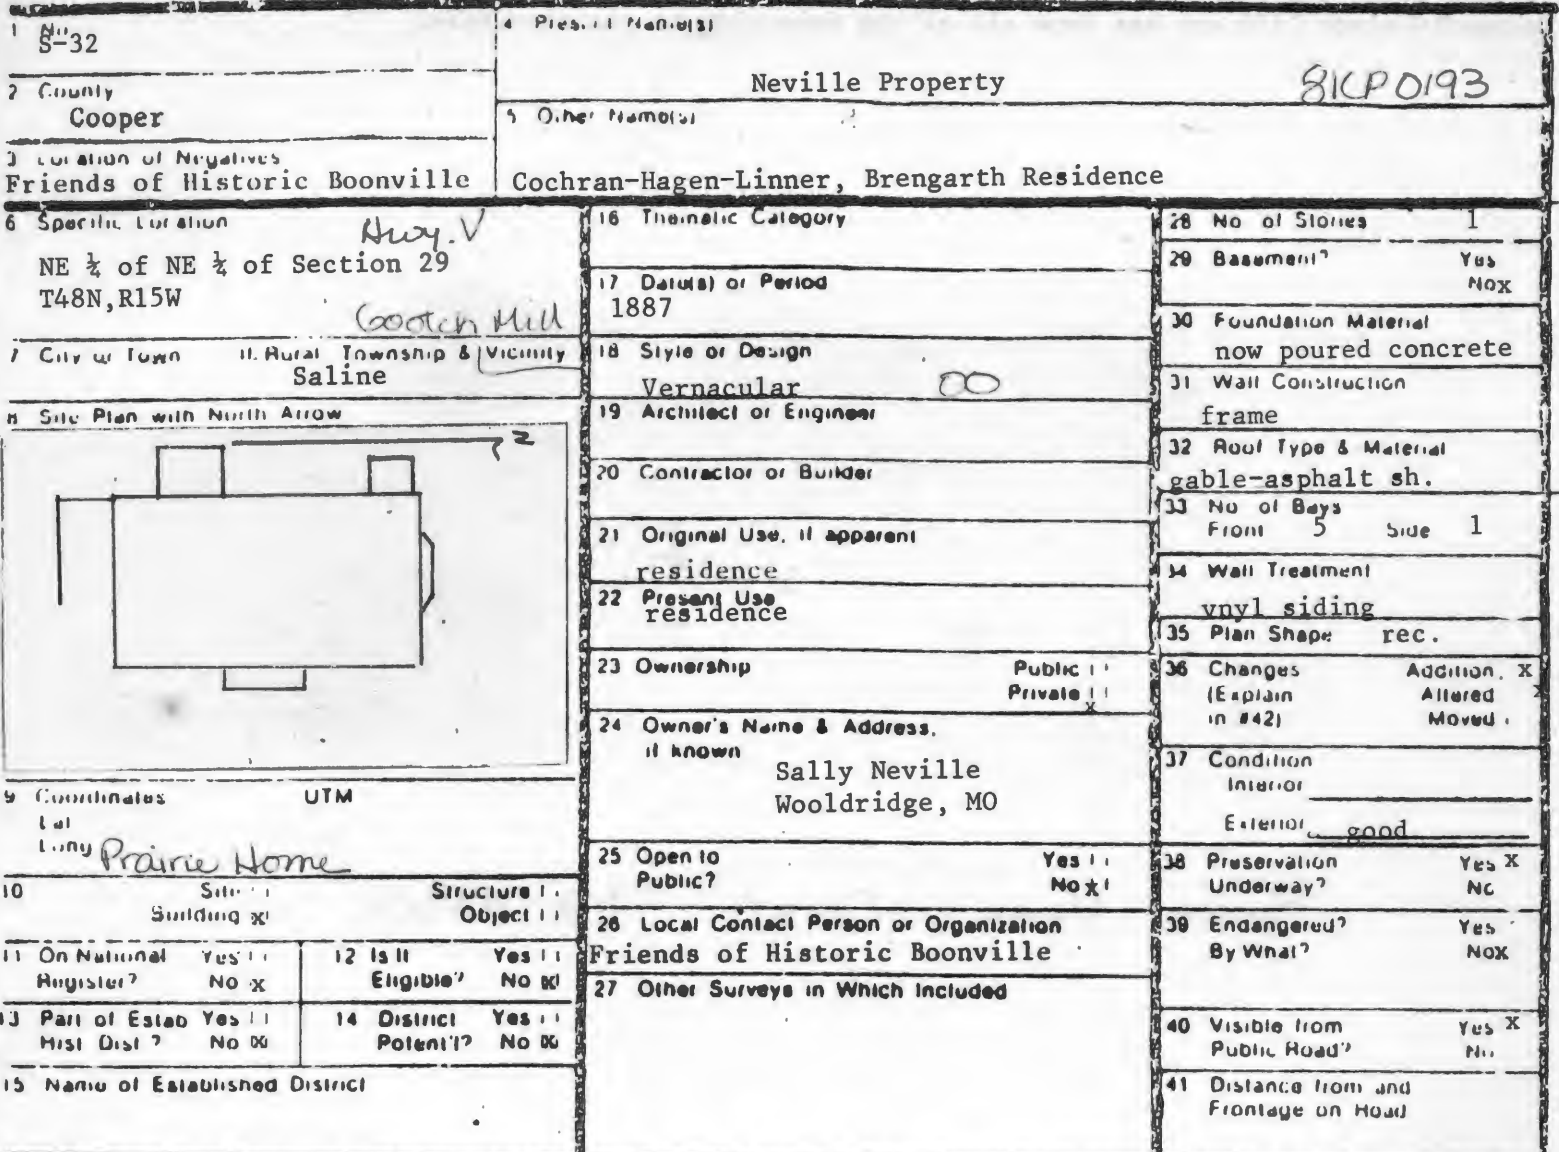 1 No.
S-32
4 Present Name(s)
Neville Property
81CP0193
2 County
Cooper
5 Other Name(s)
Cochran-Hagen-Linner, Brengarth Residence
3 Location of Negatives
Friends of Historic Boonville
6 Specific Location
Hwy. V
NE ¼ of NE ¼ of Section 29
T48N,R15W
Gooch Mill
7 City or Town If Rural, Township & Vicinity
Saline
8 Site Plan with North Arrow
N
9 Coordinates UTM
Lat
Long
Prairie Home
10 Site Structure
Building x Object
11 On National Register? Yes No x
12 Is It Eligible? Yes No x
13 Part of Estab Hist Dist? Yes No x
14 District Potent'l? Yes No x
15 Name of Established District
16 Thematic Category
17 Date(s) or Period
1887
18 Style or Design
Vernacular
19 Architect or Engineer
20 Contractor or Builder
21 Original Use, if apparent
residence
22 Present Use
residence
23 Ownership Public
Private x
24 Owner's Name & Address,
if known
Sally Neville
Wooldridge, MO
25 Open to Yes
Public? No x
26 Local Contact Person or Organization
Friends of Historic Boonville
27 Other Surveys in Which Included
28 No of Stories 1
29 Basement? Yes
No x
30 Foundation Material
now poured concrete
31 Wall Construction
frame
32 Roof Type & Material
gable-asphalt sh.
33 No of Bays
Front 5 Side 1
34 Wall Treatment
vnyl siding
35 Plan Shape rec.
36 Changes Addition x
(Explain Altered x
in #42) Moved
37 Condition
Interior
Exterior good
38 Preservation Yes x
Underway? No
39 Endangered? Yes
By What? No x
40 Visible from Yes x
Public Road? No
41 Distance from and
Frontage on Road